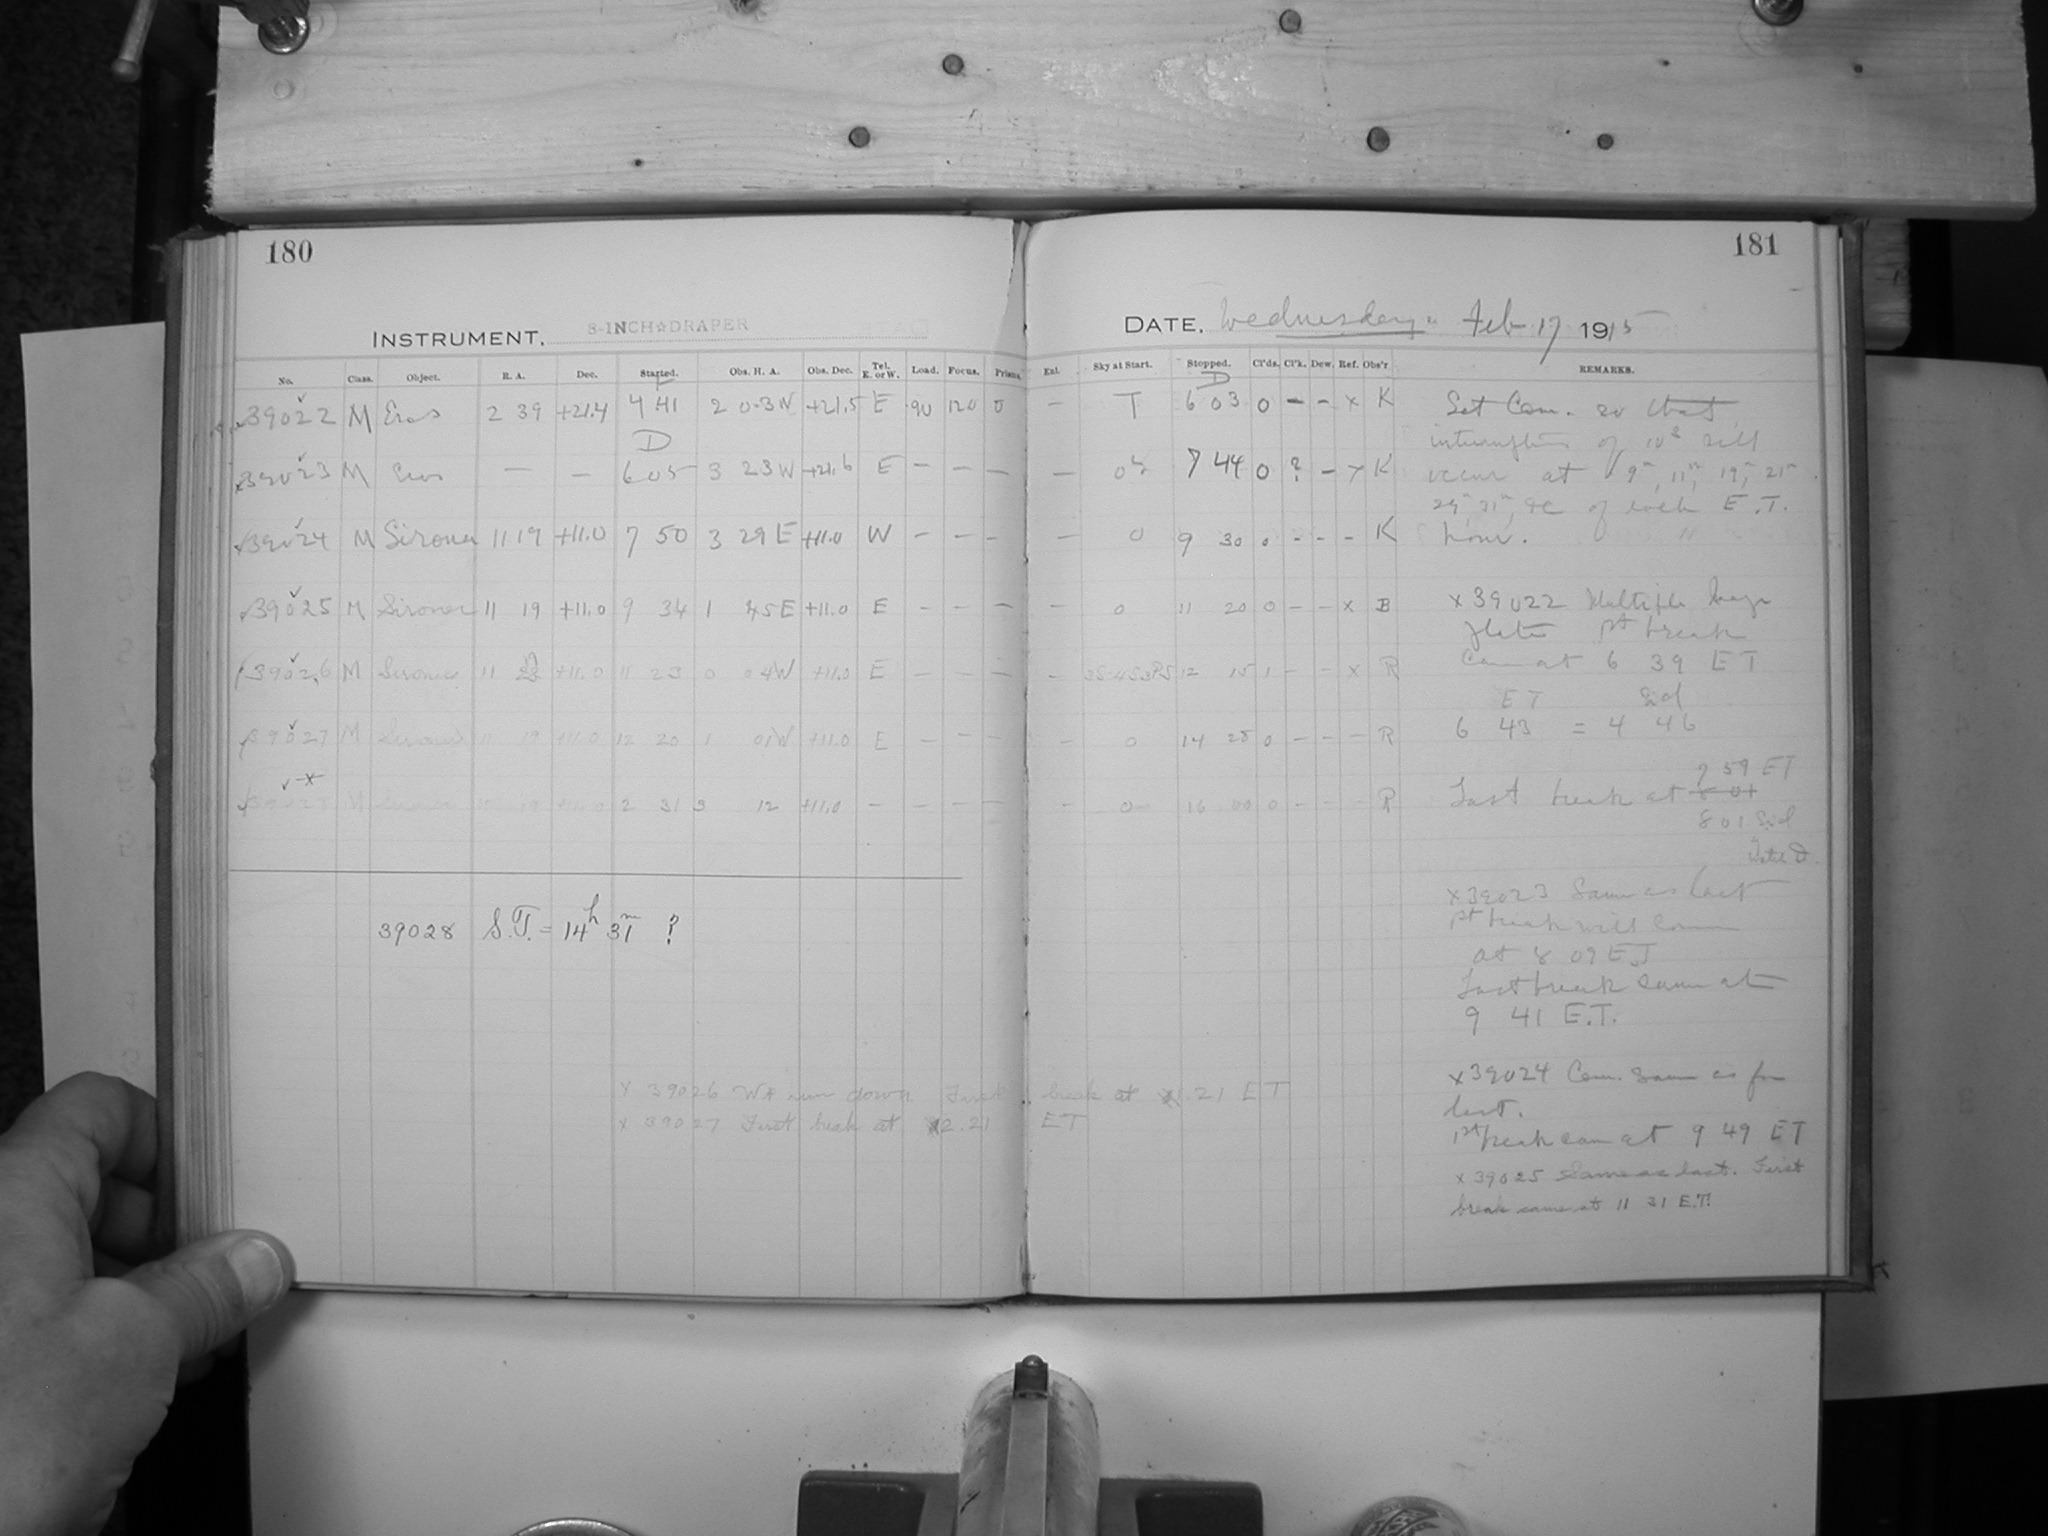 180
181
INSTRUMENT, 8-INCH☆DRAPER
DATE, Wednesday. Feb 17 1915
No. Class. Object. R. A. Dec. Started. Obs. H. A. Obs. Dec. Tel. E. or W. Load. Focus. Prisms. Ent. Sky at Start. Stopped. Cl'ds. Cl'k. Dew. Ref. Obs'r REMARKS.
39022 M Eros 2 39 +21.4 4 41 2 03W +21.5 E 90 120 0 – T D 6 03 0 – – x K
39023 M Eros – – D 6 05 3 23W +21.6 E – – – – 7 44 0 ? – x K
39024 M Sirona 11 19 +11.0 7 50 3 29E +11.0 W – – – – 0 9 30 0 - - – K
39025 M Sirona 11 19 +11.0 9 34 1 45E +11.0 E – – – – 0 11 20 0 – – x B
39026 M Sirona 11 19 +11.0 11 23 0 04W +11.0 E – – – – 12 15 1 – – x R
39027 M Sirona 11 19 +11.0 12 20 1 01W +11.0 E – – – – 0 14 28 0 – – – R
39028 M 19 +11.0 2 31 3 12 +11.0 – – – – – 0 16 00 0 – – – R
39028 S.T. = 14h 31m ?
x 39026 run down First break at .21 ET
x 39027 First break at 2.21 ET
Set Com. so that
interruptions of 10s will
occur at 9m, 11m, 19m, 21m
29m, 31m, &c of each E.T.
hour.
x 39022 Multiple Image
Plate 1st break
came at 6 39 ET
ET Sid
6 43 = 4 46
Last break at 7 59 ET
8 01
8 01 Sid
x 39023 Same as last
1st break will come
at 8 09 ET
Last break came at
9 41 E.T.
x 39024 Com. same as for
last.
1st break came at 9 49 ET
x 39025 Same as last. First
break came at 11 31 E.T.